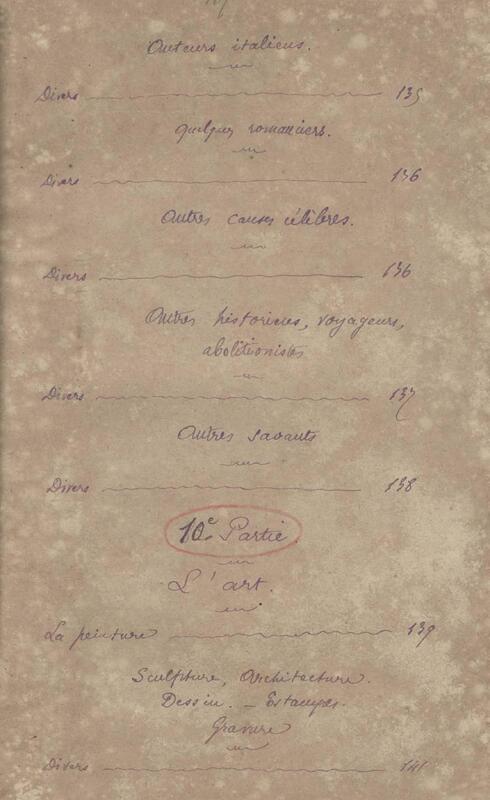 Auteurs italiens.
Divers 135
Quelques romanciers.
Divers 136
Autres causes célèbres.
Divers 136
Autres historiens, voyageurs,
abolitionistes
Divers 137
Autres savants
Divers 138
10e Partie.
L'art.
La peinture 139
Sculpture, Architecture.
Dessin. — Estampes.
Gravure
Divers 141